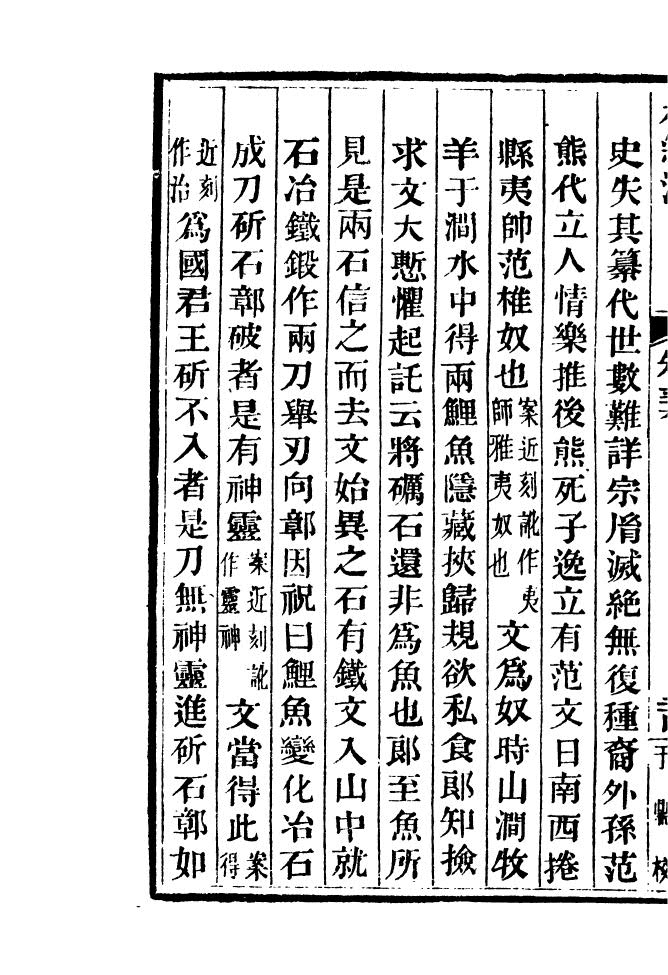 史失其纂代世數難詳宗𦙍滅絶無復種裔外孫范
熊代立人情樂推後熊死子逸立有范文日南西捲
縣夷帥范椎奴也案近刻訛作夷師雅夷奴也文爲奴時山澗牧
羊于澗水中得兩鯉魚隱藏挾歸規欲私食郞知撿
求文大慙懼起託云將礪石還非爲魚也郞至魚所
見是兩石信之而去文始異之石有鐵文入山中就
石冶鐵鍛作兩刀舉刃向鄣因祝曰鯉魚變化冶石
成刀斫石鄣破者是有神靈案近刻訛作靈神文當得此案得
近刻作治爲國君王斫不入者是刀無神靈進斫石鄣如